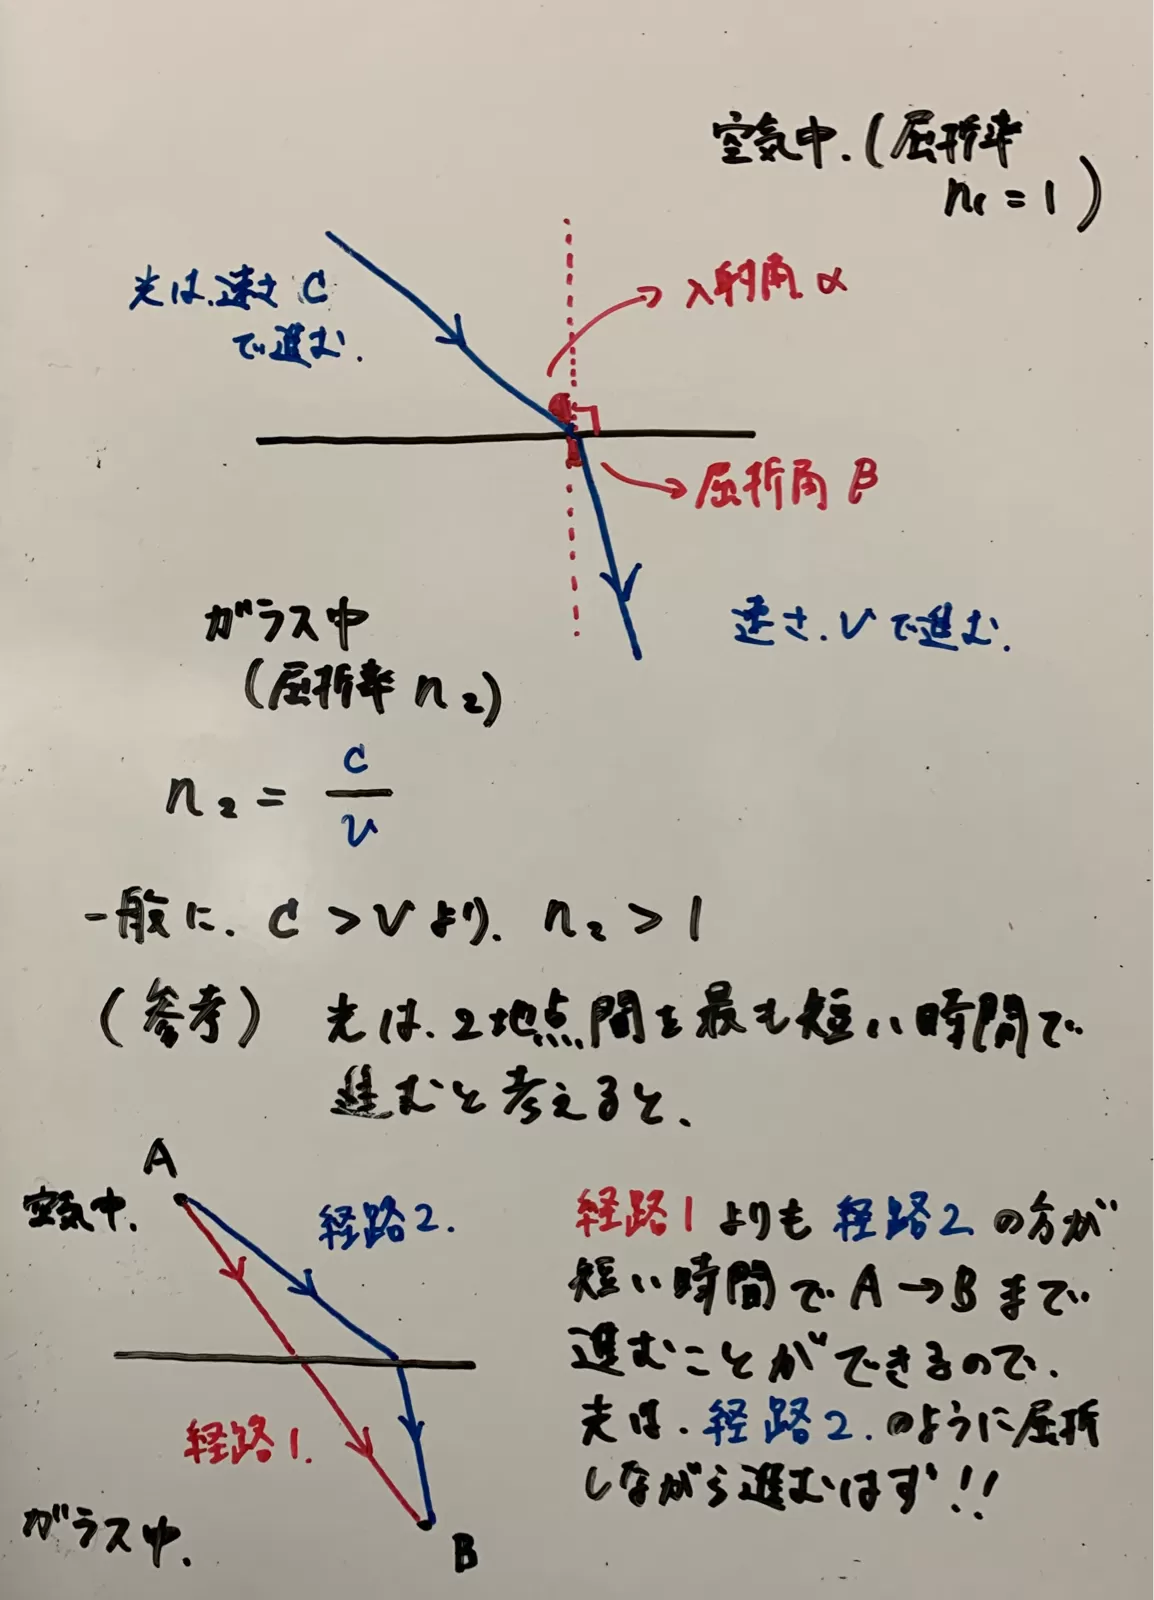 空気中.(屈折率
n₁=1)
光は.速さ C
で進む.
入射角 α
屈折角 β
ガラス中
(屈折率 n₂)
速さ.vで進む.
n₂ = c/v
一般に. c > v より. n₂ > 1
(参考) 光は.2地点間を最も短い時間で
進むと考えると、
A
空気中.
経路2.
経路1.
ガラス中.
B
経路1よりも経路2の方が
短い時間でA→Bまで
進むことができるので.
光は.経路2.のように屈折
しながら進むはず!!